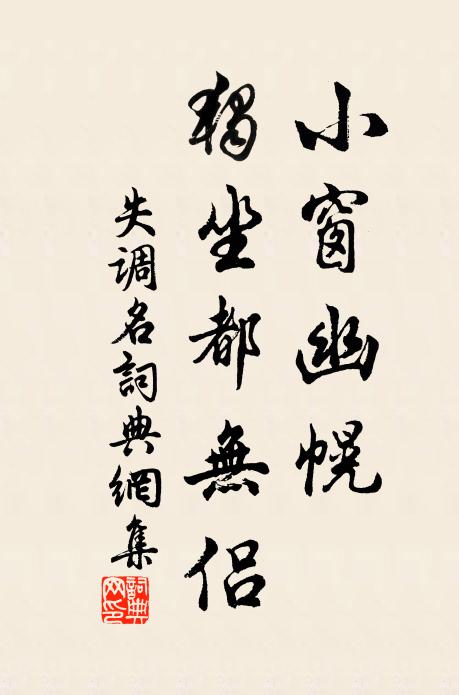 小窗幽幌
獨坐都無侶
失调名詞典網集
詞典网印